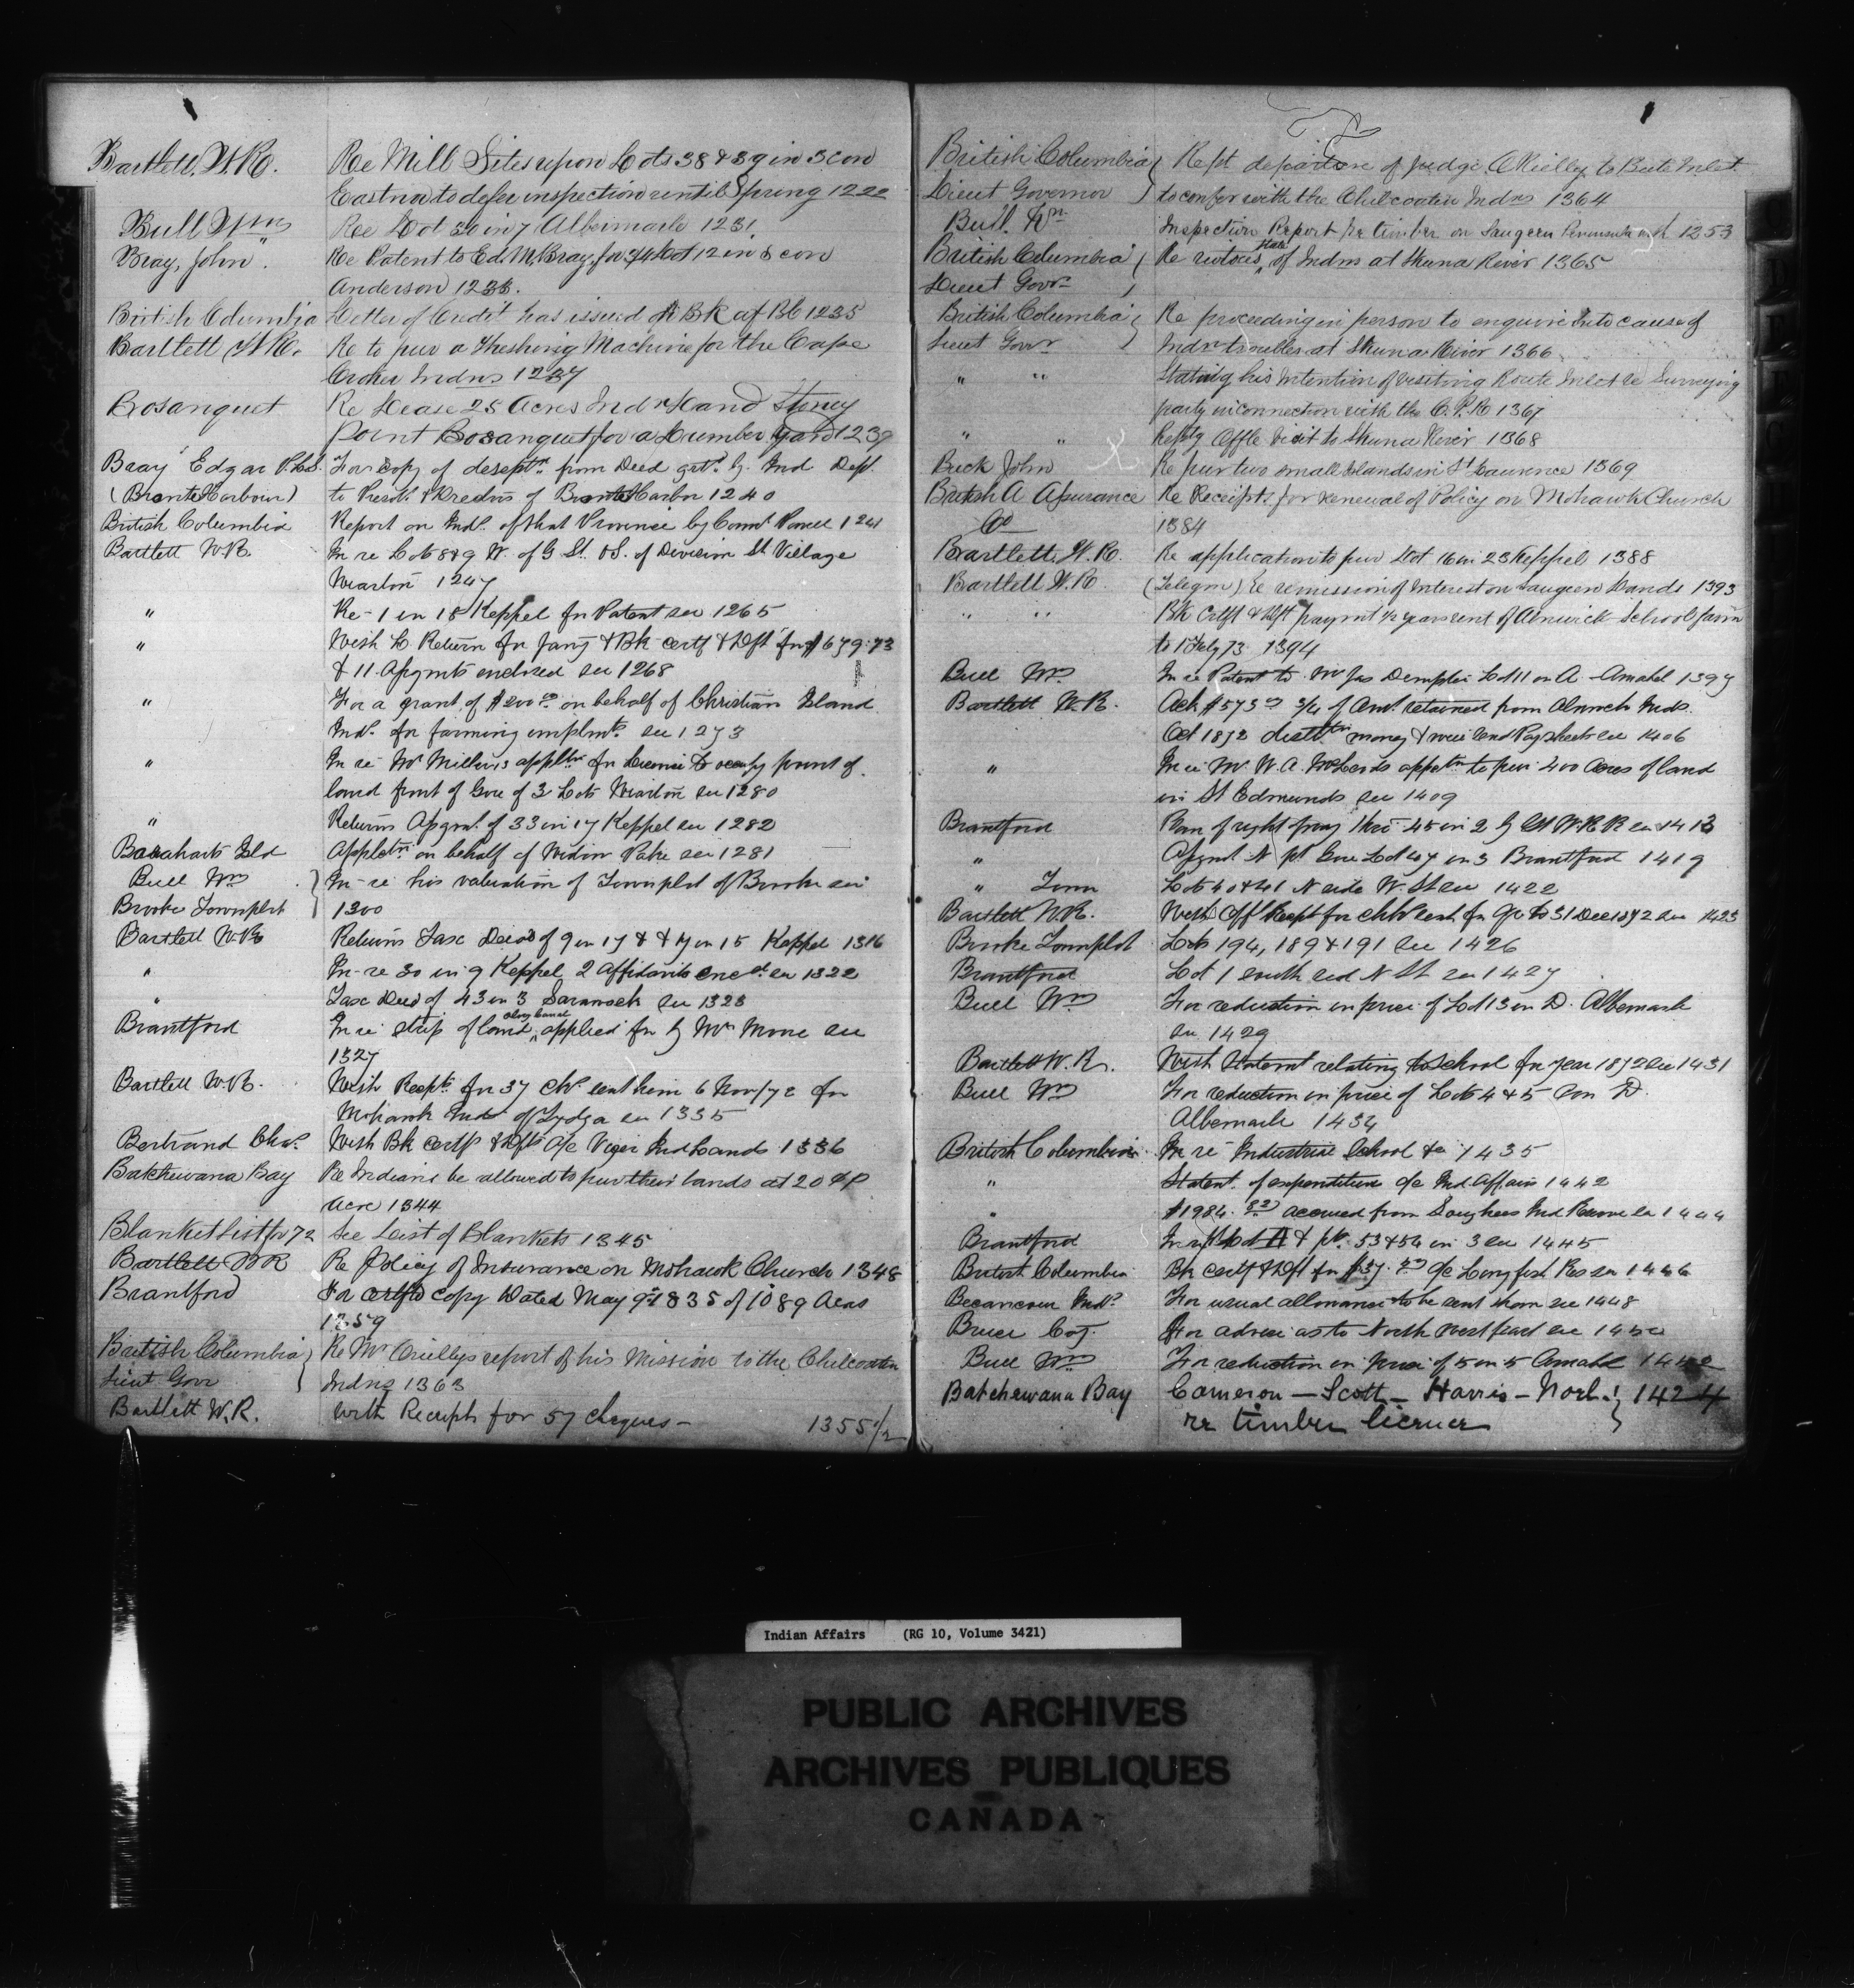 Bartlett, W.R. Re Mill Sites upon Lots 38 & 39 in 3 con
Eastnor to defer inspection until Spring 1222
Bull Wm Re Lot 30 in 7 Albermarle 1231
Bray, John Re Patent to Ed. M. Bray, for Lot 12 in con
Anderson 1233.
British Columbia Letter of Credit has issued Bk of BC 1235
Bartlett W.R. Re to pur a Threshing Machine for the Cape
Croker Indns 1237
Bosanquet Re Lease 25 Acres Indn Land Stoney
Point Bosanquet for a Lumber Yard 1239
Bray Edgar P.L.S. For copy of descptn from Deed grtd by Ind Dept
(Bronte Harbour) to Presdt & Credrs of Bronte Harbor 1240
British Columbia Report on Inds of that Province by Comr Powell 1241
Bartlett W.R. In re Lots 8 & 9 W. of G St. & S. of Division St Village
Wiarton 1247
" Re - 1 in 18 Keppel for Patent see 1265
" With L Return for Jany & Bk certf & Dft for $679.73
& 11 Asgmts enclosed see 1268
" For a grant of $200.00 on behalf of Christian Island
Inds for farming implmts see 1273
" In re Mr Miller's appltn for License to occupy point of
land front of Gore of 3 Lots Wiarton see 1280
" Returns Asgmt of 33 in 17 Keppel see 1282
Appletn on behalf of Widow see 1281
Bull Wm } In-re his valuation of Townplot of Brooke see
Brooke Townplot } 1300
Bartlett W.R. Returns Tax Deeds of 9 in 17 & 17 in 15 Keppel 1316
" In-re 30 in 9 Keppel, 2 Affidavits encd see 1322
" Tax Deed of 43 in 3 Sarawack see 1323
along canal
Brantford In re strip of land applied for by Mr Moore see
1327
Bartlett W.R. With Recpts for 37 chqs sent him 6 Nov/72 for
Mohawk Inds of see 1335
Bertrand Chas. With Bk certf & Dft a/c Viger Ind Lands 1336
Batchewana Bay Re Indians be allowed to pur their lands at 20 ¢ P
acre 1344
Blanket List for 72 See List of Blankets 1345
Bartlett WR Re Policy of Insurance on Mohawk Church 1348
Brantford For certfd copy Dated May 9th 1835 of 1089 Acres
1359
British Columbia } Re Mr O'Reillys report of his Mission to the Chilcoaten
Lieut Govr } Indns 1363
Bartlett W.R. with Receipts for 57 cheques - 1355 1/2
British Columbia } Rept departure of Judge O'Rielly to Bute Inlet
Lieut Governor } to confer with the Chilcoaten Indns 1364
Bull. Wm Inspection Report re timber on Saugeen Peninsula 1253
British Columbia } Re riotous State of Indns at Skena River 1365
Lieut Govr }
British Columbia } Re proceeding in person to enquire into cause of
Lieut Govr } Indn troubles at Skena River 1366
" " Stating his intention of visiting Inlet re Surveying
party in connection with the C.P.R 1367
" " Reptg Offle Visit to Skena River 1368
Buck John Re pur two small Islands in St Lawrence 1369
British A Assurance Re Receipts for renewal of Policy on Mohawk Church
Co 1384
Bartlett, W.R. Re application to pur Lot 16 in 23 Keppel 1388
Bartlett W.R. (Telegm) Re remission of Interest on Saugeen Lands 1393
" " Bk Crtft & Dft paymt 1/2 years rent of Alnwick School farm
to 1 Feby 73 1394
Bull Wm In re Patent to Mr Jas Dempster Lot 11 on A - Amabel 1397
Bartlett W.R. Ack $573 3/4 of Amt retained from Alnwick Inds.
Oct 1872 distbtn money & will send Paysheets see 1406
" In re Mr W.A. McLeods appltn to pur 400 Acres of land
in St Edmunds see 1409
Brantford Plan of right of way thro 45 in 2 by Gt W.R.R see 1413
" Asgmt N pt Gore Lot 47 in 3 Brantford 1419
" Town Lots 40 & 41 N side W. St see 1422
Bartlett W.R. With Off Recpt for chq sent for Qr to 31 Dec 1872 see 1423
Brooke Townplot Lots 194, 189 & 191 see 1426
Brantford Lot 1 south sid N St see 1427
Bull Wm For reduction in price of Lot 13 in D. Albemarle
see 1429
Bartlett W.R. With Statemt relating to School for year 1872 see 1431
Bull Wm For reduction in price of Lots 4 & 5 Con D.
Albemarle 1434
British Columbia In re Industrial School &c 1435
" Statemt. of expenditure o/c Ind. Affairs 1442
" $1984. accrued from Songhees Ind Reserve see 1444
Brantford In re Lot & pts 53 & 54 in 3 see 1445
British Columbia Bk certf & Dft for $37. o/c Res see 1446
Becancour Inds. For usual allowance to be sent them see 1448
Bruce Coy. For advice as to North West see 1450
Bull Wm For reduction in price of 5 in 5 Amabel 1442
Batchewana Bay Cameron - Scott - Harris - Noel } 1424
re timber license
Indian Affairs (RG 10, Volume 3421)
PUBLIC ARCHIVES
ARCHIVES PUBLIQUES
CANADA